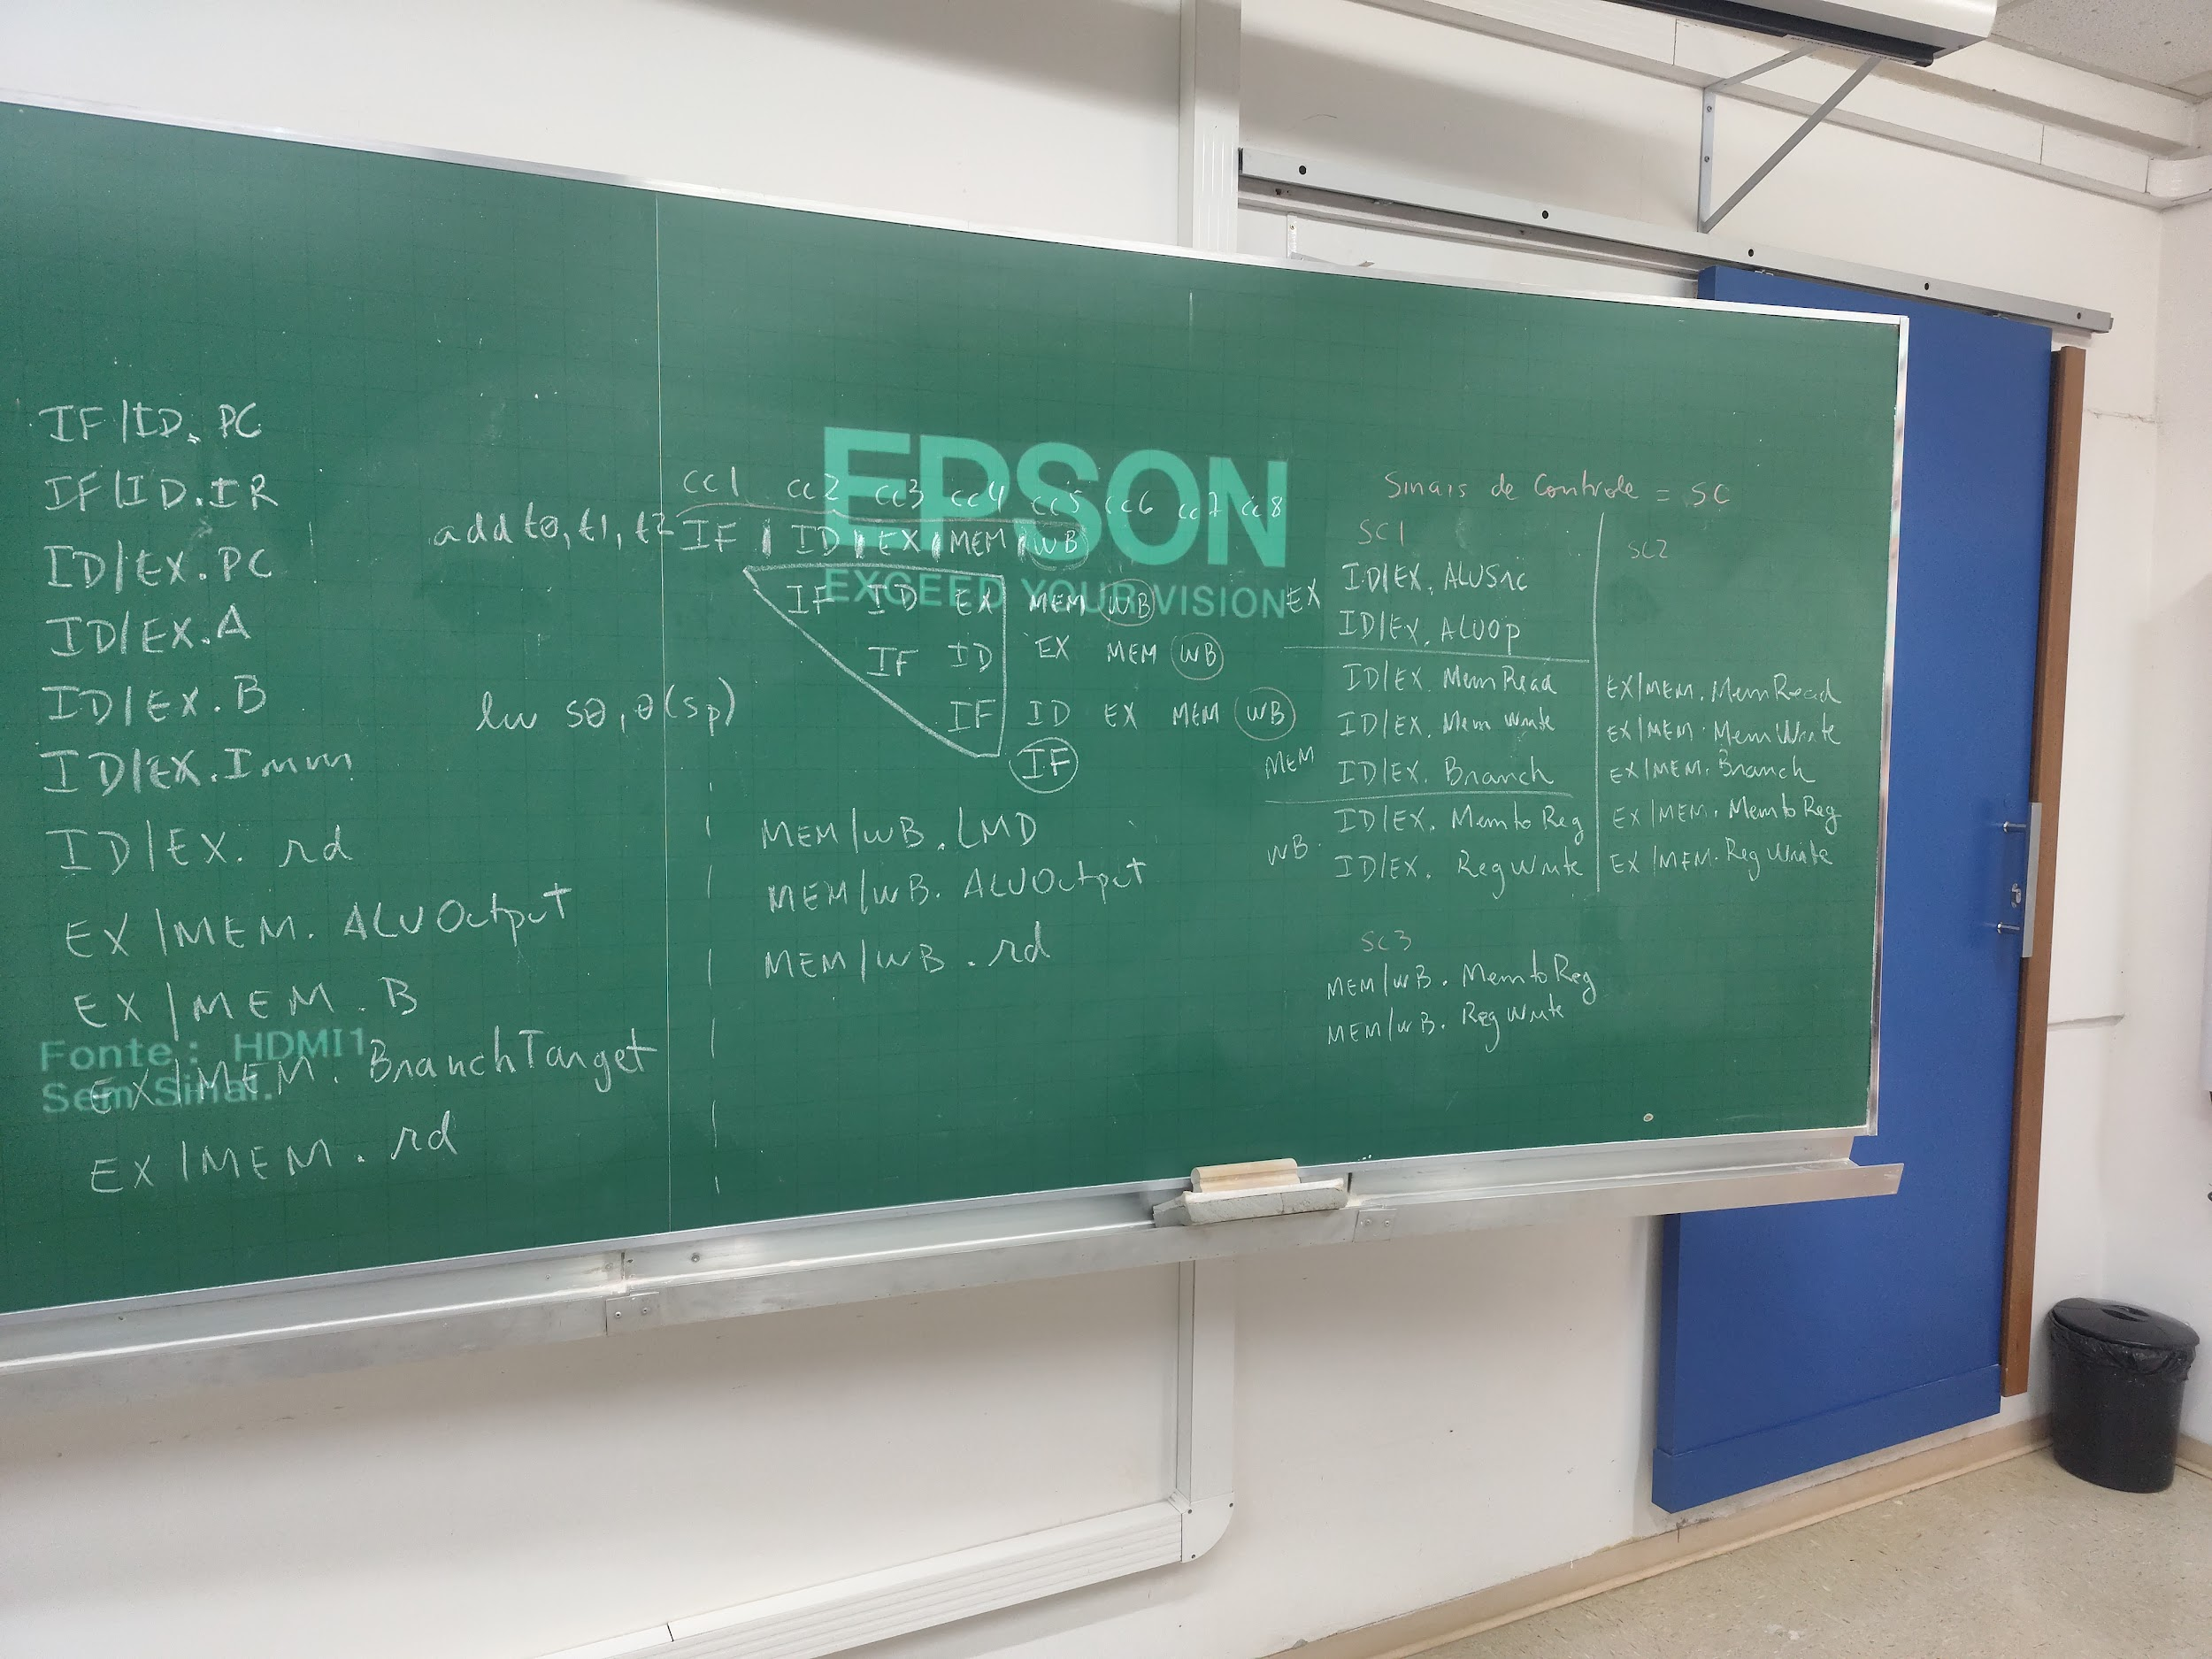 IF/ID. PC
IF/ID.IR
ID/EX.PC
ID/EX.A
ID/EX.B
ID/EX.Imm
ID/EX. rd
EX/MEM. ALUOutput
EX/MEM.B
EX/MEM. BranchTarget
EX/MEM. rd
Fonte: HDMI1
Sem Sinal.
cc1 cc2 cc3 cc4 cc5 cc6 cc7 cc8
add t0, t1, t2 IF | ID | EX | MEM | WB
IF ID EX MEM WB
IF ID EX MEM WB
lw s0, 0(sp) IF ID EX MEM WB
IF
EPSON
EXCEED YOUR VISION
MEM/WB.LMD
MEM/WB. ALUOutput
MEM/WB. rd
Sinais de Controle = SC
SC1
EX ID/EX. ALUSrc
ID/EX. ALUOp
ID/EX. MemRead
ID/EX. MemWrite
MEM ID/EX. Branch
ID/EX. MemtoReg
WB. ID/EX. RegWrite
SC2
EX/MEM. MemRead
EX/MEM. MemWrite
EX/MEM. Branch
EX/MEM. MemtoReg
EX/MEM. RegWrite
SC3
MEM/WB. MemtoReg
MEM/WB. RegWrite